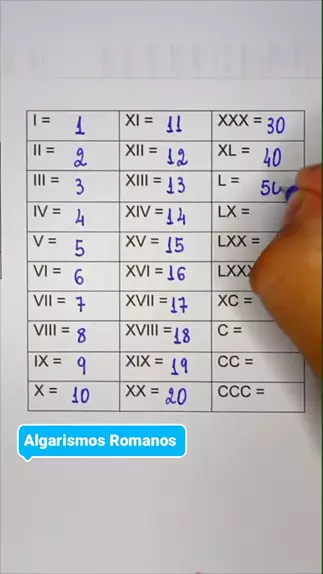 I = 1 XI = 11 XXX = 30
II = 2 XII = 12 XL = 40
III = 3 XIII = 13 L = 50
IV = 4 XIV = 14 LX =
V = 5 XV = 15 LXX =
VI = 6 XVI = 16
VII = 7 XVII = 17 XC =
VIII = 8 XVIII = 18 C =
IX = 9 XIX = 19 CC =
X = 10 XX = 20 CCC =
Algarismos Romanos